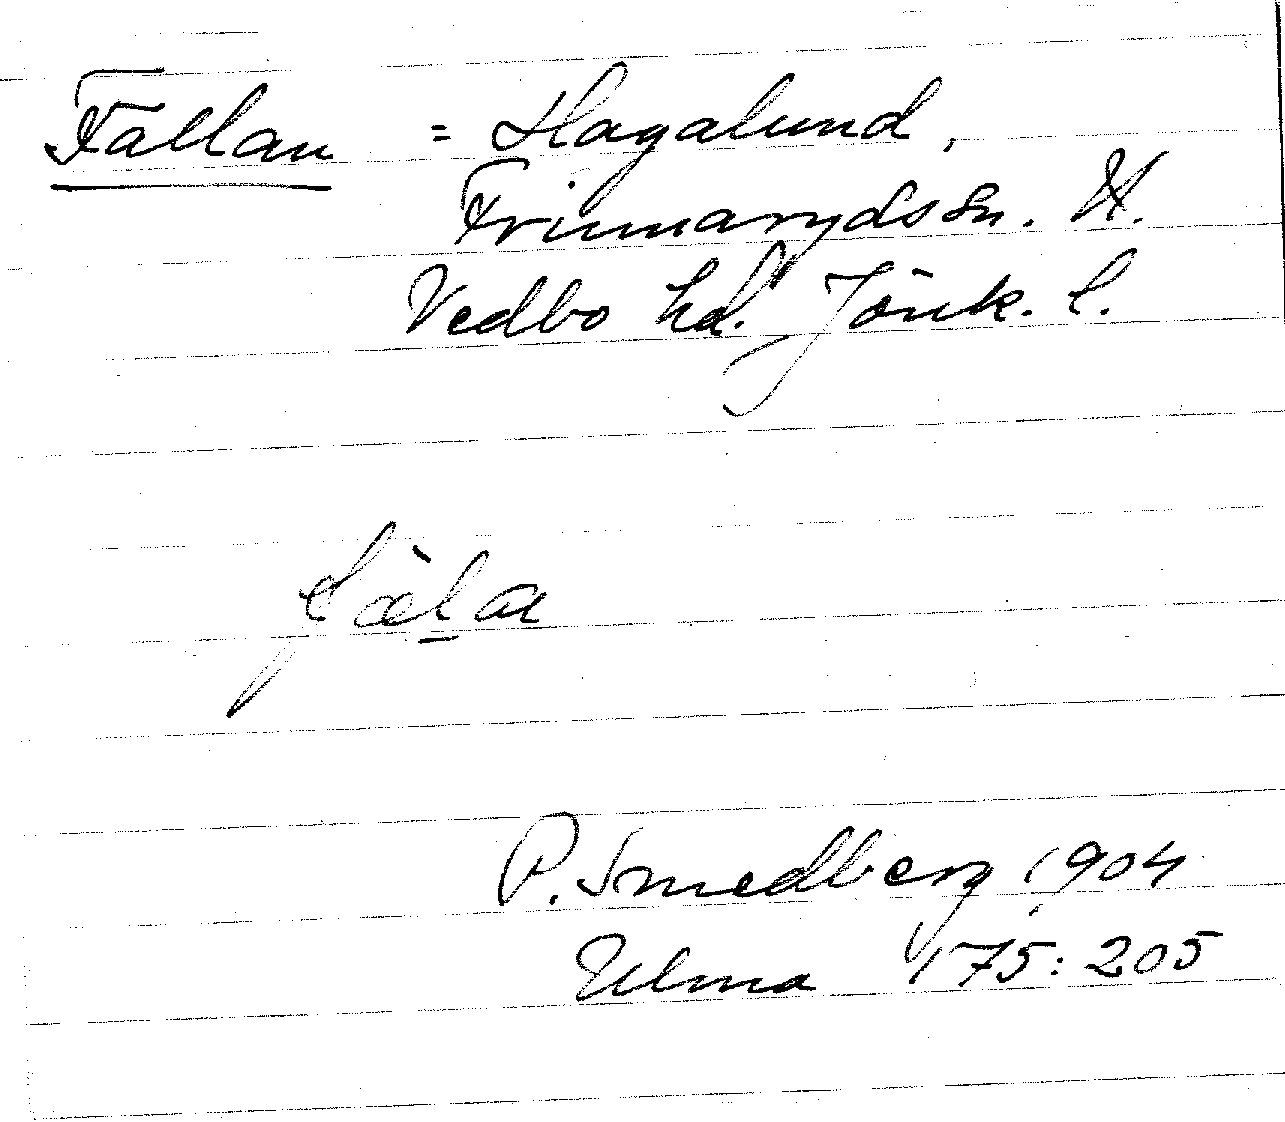 Fällan = Hagalund,
Frinnaryds sn. N.
Vedbo hd. Jönk. l.
fæ̀l̲a
P. Smedberg 1904
Ulma 175:205